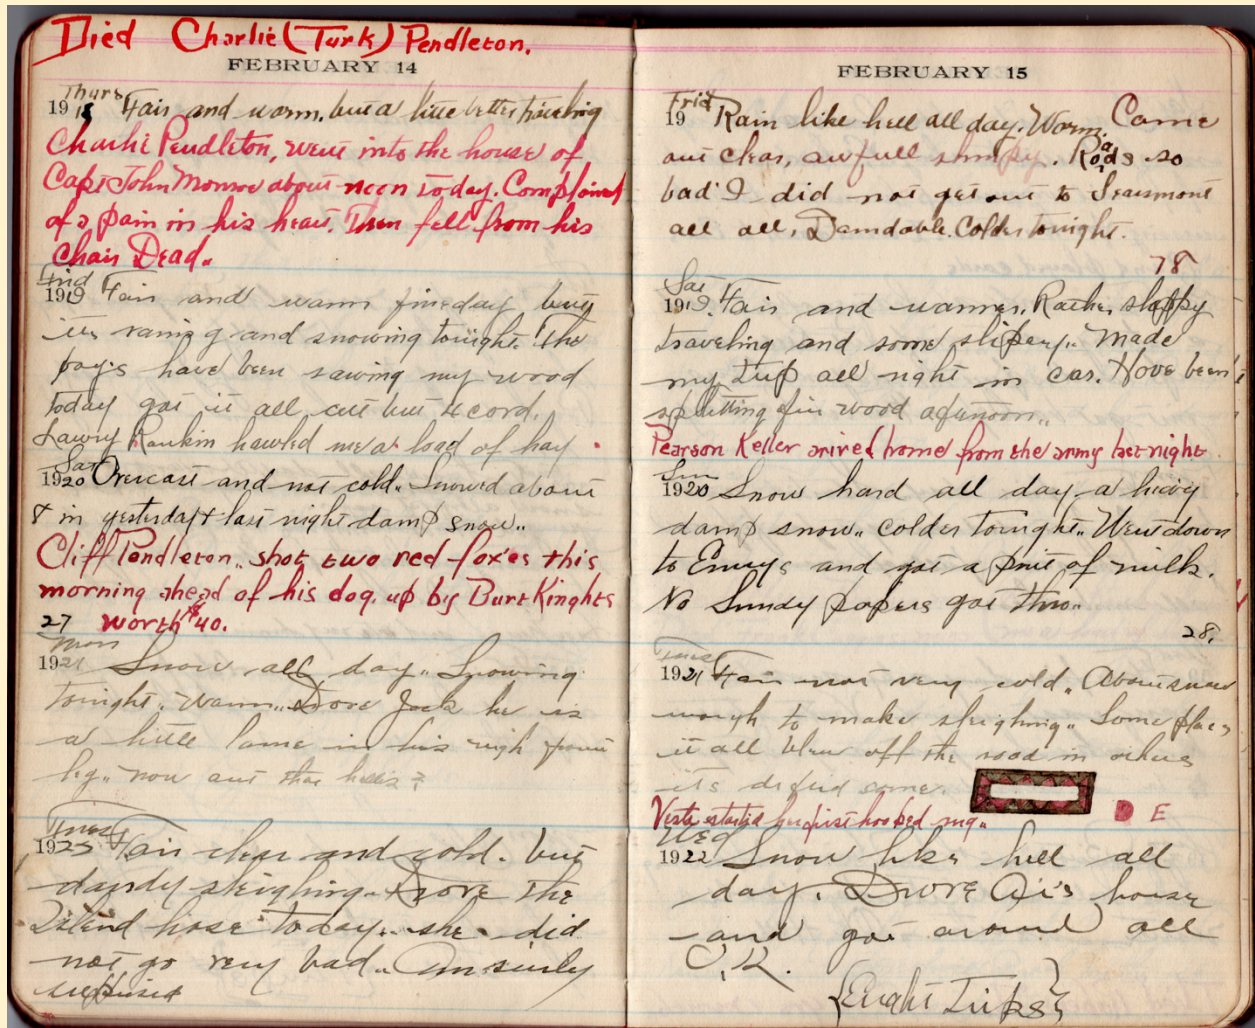 Died Charlie (Turk) Pendleton.
FEBRUARY 14
Thurs
1918 Fair and warm, but a litle better traveling
Charlie Pendleton, went into the house of
Capt John Monroe about noon today. Complained
of a pain in his heart. Then fell from his
chair Dead..
Frid
1919 Fair and warm fine day but
its raning and snowing tonight. The
boys have been sawing my wood
today got it all cut but 4 cord.
Lawry Rankin hawled me a load of hay.
Sat
1920 Overcast and not cold.. Snowed about
8 in yesterday & last night damp snow..
Cliff Pendleton.. shot two red foxes this
morning ahead of his dog. up by Burt Kinghts
27 worth $40.
Mon
1921 Snow all day.. Snowing
tonight. Warm.. Drove Jack he is
a little lame in his righ front
leg.. now aut that hellis?
Tues
1923 Fair clear and cold. but
dandy sleighing.. Drove the
hose today.. she did
not go very bad.. Am surely
surprised
FEBRUARY 15
Frid
19 Rain like hell all day. Warm. Came
out clear, awfull slumpy. Roads so
bad I did not get out to Searsmont
all all. Damdable. Colder tonight.
78
Sat
1919. Fair and warmer. Rather sloppy
traveling and some slipery.. Made
my trip all right in car. Have been
splitting fir wood afternoon..
Pearson Keller arived home from the army last night
Sun
1920 Snow hard all day a hievy
damp snow.. colder tonight.. Went down
to Emrys and got a pint of milk.
No Sundy papers got thro..
28.
Tues
1921 Fair not very cold.. About snow
nough to make sleighing.. Some places
it all blew off the road in others
its drifed some.
Vesta started her first hooked rug..
D E
Wed
1922 Snow like hell all
day. Drove Ai's house
and got around all
O.K.
{Eight Trips}